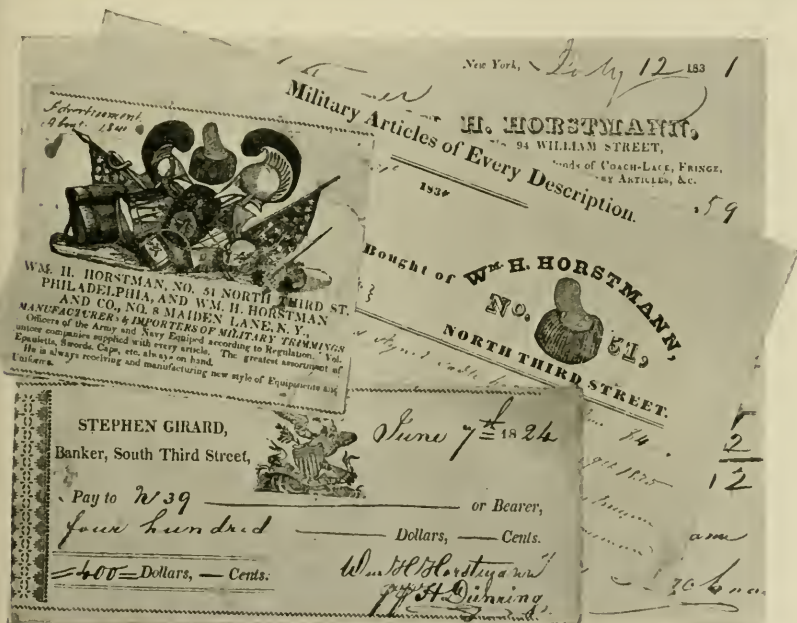 New York, July 12 1831
H. HORSTMANN,
94 WILLIAM STREET,
of COACH-LACE, FRINGE,
ARTICLES, &C.
Military Articles of Every Description.
183
59
Bought of WM. H. HORSTMANN,
No. 51,
NORTH THIRD STREET.
Advertisement
About 1840
WM. H. HORSTMAN, NO. 51 NORTH THIRD ST.
PHILADELPHIA, AND WM. H. HORSTMAN
AND CO., NO. 8 MAIDEN LANE, N. Y.,
MANUFACTURERS & IMPORTERS OF MILITARY TRIMMINGS
Officers of the Army and Navy Equiped according to Regulation. Vol-
unteer companies supplied with every article. The greatest assortment of
Epauletts, Swords, Caps, etc. always on hand.
He is always receiving and manufacturing new style of Equipments and
Uniforms.
STEPHEN GIRARD,
Banker, South Third Street,
June 7th 1824
Pay to No 39 or Bearer,
four hundred Dollars, — Cents.
=400= Dollars, — Cents.
Wm H Horstmann
H Dunning
2
12